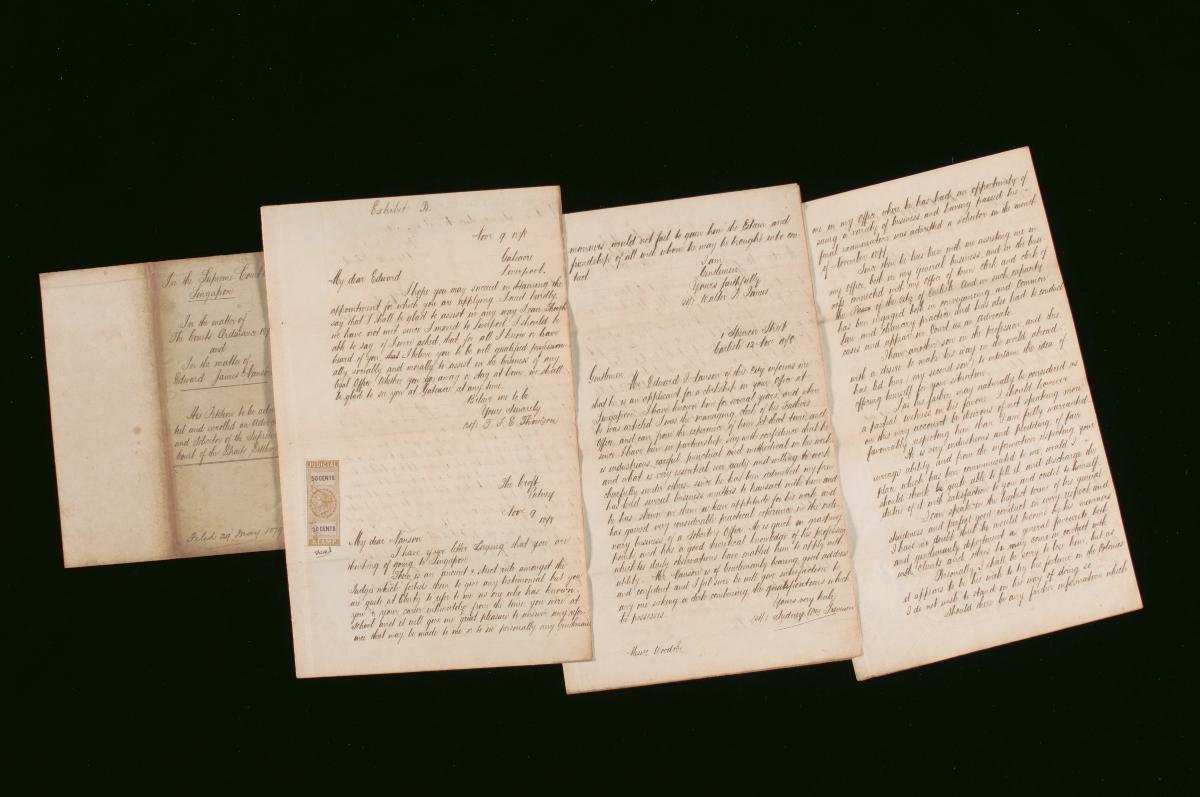 In the Supreme Court
Singapore
In the matter of
The Courts Ordinance
and
In the matter of
Edward James Nanson
His Petition to be
and enrolled an
and Solicitor of the Supreme
Court of the Straits
Filed 29 May 1879
Exhibit B.
Nov 9
Gateacre
Liverpool.
My dear Edward
I hope you may succeed in obtaining the
appointment for which you are applying. I need hardly
say that I shall be glad to assist in any way I can. Though
we have not met since I moved to Liverpool I should be
able to say if I were asked, that for all I know or have
heard of you, that I believe you to be well qualified profession-
ally socially and morally to assist in the business of any
legal Office. Whether you go away or stay at home, we shall
be glad to see you at Gateacre at any time.
Believe me to be
Yours Sincerely
Thomson
JUDICIAL
50 CENTS
50 CENTS
STAMP
The Croft
Nov 9
My dear Nanson
I have your letter saying that you are
thinking of going to Singapore
There is an ancient & strict rule amongst the
Judges which forbids them to give any testimonial but you
are quite at liberty to refer to me as one who has known
you & your career intimately from the time you were at
school and it will give me great pleasure to answer any refer-
ence that may be made to me or to see personally any Gentleman
manners, would not fail to gain him the Esteem and
friendship of all with whom he may be brought into con
tact
I am
Gentlemen
Yours faithfully
Walter
1 Spencer Street
Carlisle 12 Nov
Gentlemen
Mr. Edward J. Nanson of this City informs me
that he is an applicant for a clerkship in your office at
Singapore. I have known him for several years, and when
he was articled I was the managing clerk of his Father's
Office and can, from the experience of him for that time and
since I have been in partnership, say with confidence that he
is industrious, careful, punctual and methodical in his work
and what is very essential an early and willing to work
cheerfully under others. Since he has been admitted my firm
has had several business matters to transact with him and
he has shown us them so keen application for his work and
has gained very considerable practical experience in the ordi
nary business of a Solicitors Office. He is quick in grasping
points and has a good theoretical knowledge of his profession
which his daily observations have enabled him to apply with
utility. Mr. Nanson is of Gentlemanly bearing, good address
and confident and I feel sure he will give satisfaction to
any one seeking a clerk combining the qualifications which
he possesses.
Yours very truly
Sydney
Messrs Woods
me in my Office where he has had an opportunity of
seeing a variety of business, and having passed his
final examination was admitted a solicitor in the month
of November
Since then he has been with me assisting me in
my office, both in my general business, and in the busi-
ness connected with my office of town clerk and clerk of
the Peace of the city of Carlisle. And in such capacity
has been engaged both in conveyancing and Common
Law and Chancery practice and has also had to conduct
cases and appear in Court as an advocate
I have another son in the profession, and this
with a desire to make his way in the world abroad
has led him, my second son, to entertain the idea of
offering himself to your attention.
I as his father may naturally be considered as
a partial witness in his favour. I should however
on this very account be desirous of not speaking more
favourably respecting him than I am fully warranted
He is very industrious and plodding, of fair
average ability and from the information respecting your
place which has been communicated to me would I
should think be quite able to fill it and discharge the
duties of it with satisfaction to you and credit to himself.
I can speak in the highest terms of his general
steadiness and perfect good conduct in every respect and
I have no doubt that he would himself by his manners
and gentlemanly deportment as a general favourite both
with clients and others he may come in contact with
Personally I shall be sorry to lose him, but as
it appears to be his wish to try his fortune in the Colonies
I do not wish to stand in his way of doing so
Should there be any further information which